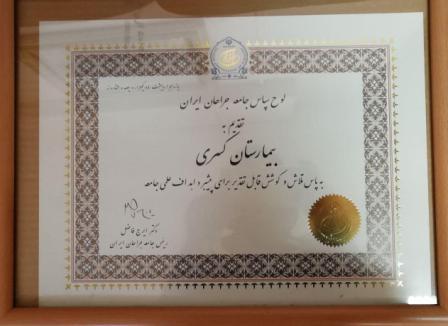 لوح سپاس جامعه جراحان ایران
تقدیم به
بیمارستان کسری
به پاس تلاش و کوشش قابل تقدیر برای پیشبرد اهداف علمی جامعه
دکتر ایرج فاضل
رییس جامعه جراحان ایران